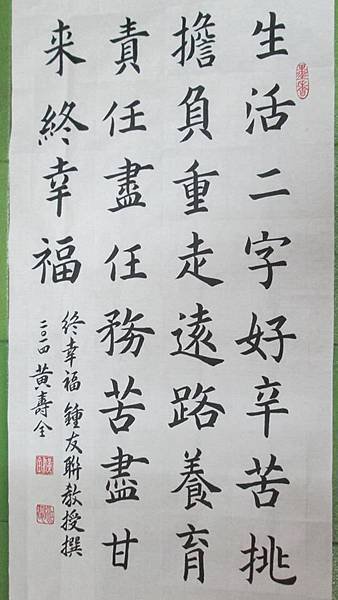 生活二字好辛苦挑
擔負重走遠路養育
責任盡任務苦盡甘
来終幸福
終幸福 鍾友聯教授撰
二〇一四 黃壽全